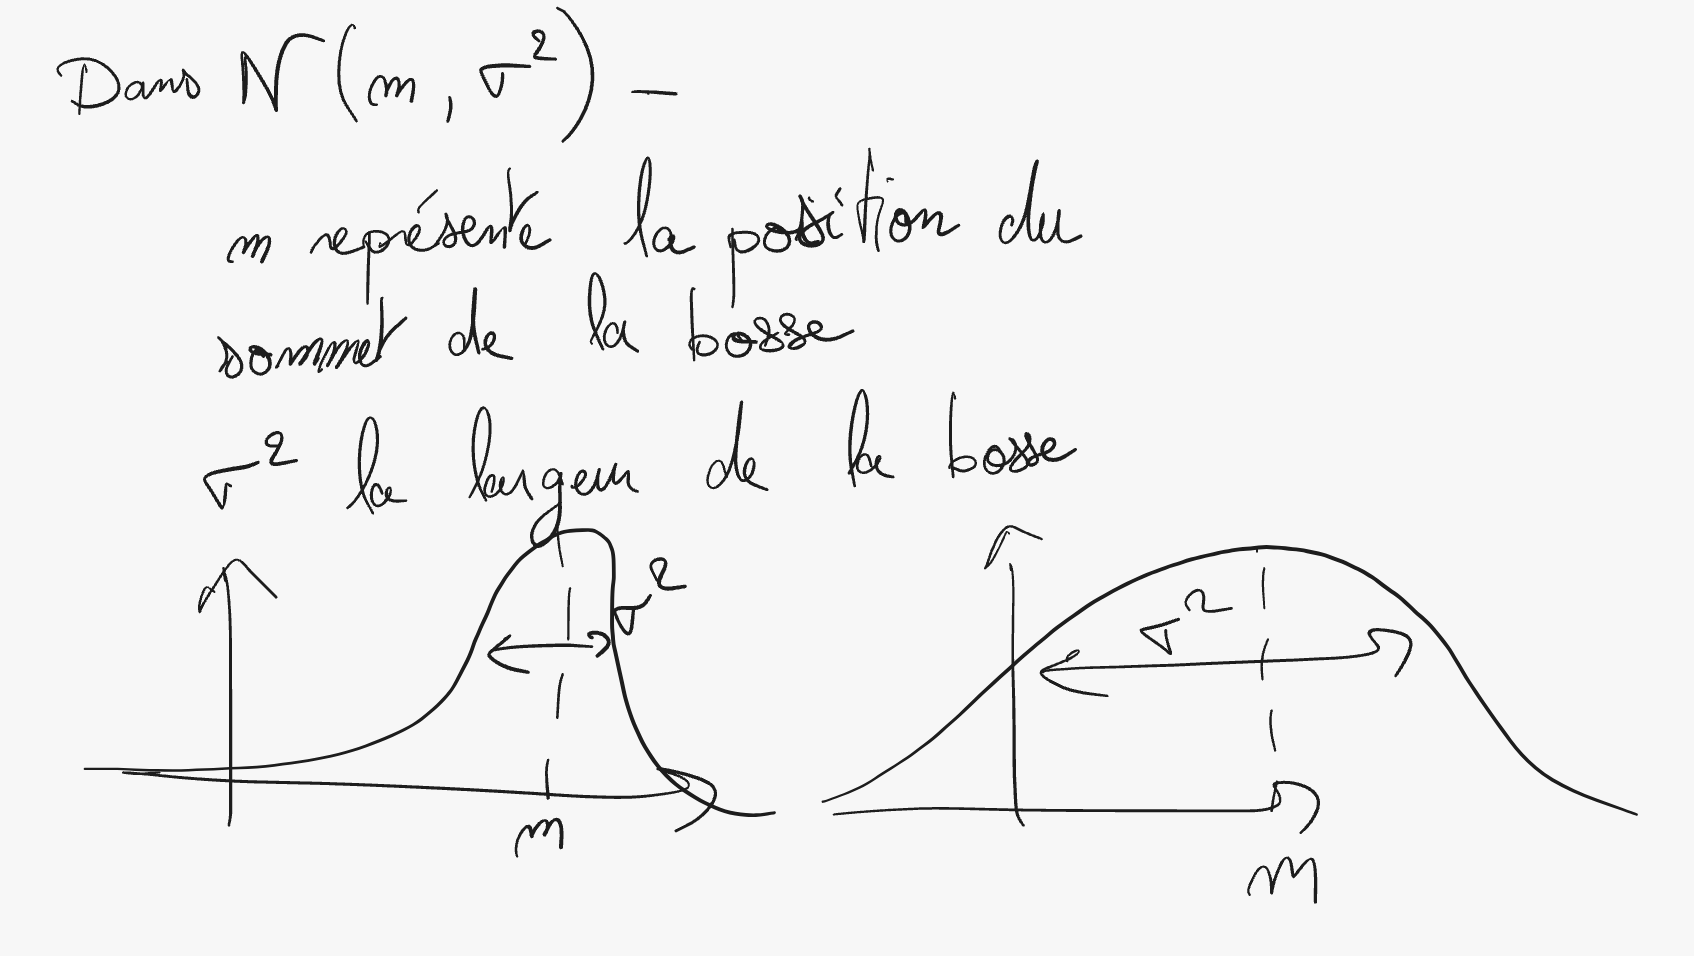 Dans N(m, σ²) —
m représente la position du
sommet de la bosse
σ² la largeur de la bosse
σ²
m
σ²
m